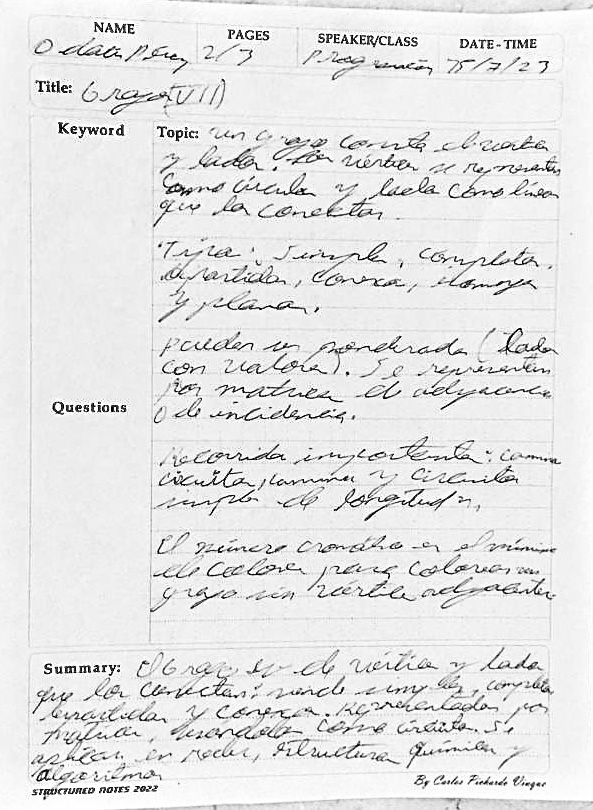 NAME PAGES SPEAKER/CLASS DATE - TIME
2/3 15/7/23
Title: Grafos (VII)
Keyword
Topic: un grafo consta de vértices
y lados. Los vértices se representan
como círculos y lados como líneas
que los conectan.
Tipos: Simples, completos,
bipartidos, conexos,
y planos.
Pueden ser ponderados (lados
con valores). Se representan
por matrices de adyacencia
o de incidencia.
Questions
Recorridos importantes: caminos
circuitos, caminos y circuitos
simples de longitud n.
El número cromático es el mínimo
de colores para colorear un
grafo sin vértices adyacentes
Summary: El Grafo es de vértices y lados
que los conectan: puede simples, completos
bipartidos y conexos. Representados por
matrices, como circuitos. Se
aplican en redes, estructuras químicas y
algoritmos
STRUCTURED NOTES 2022
By Carlos Pichardo Vinque